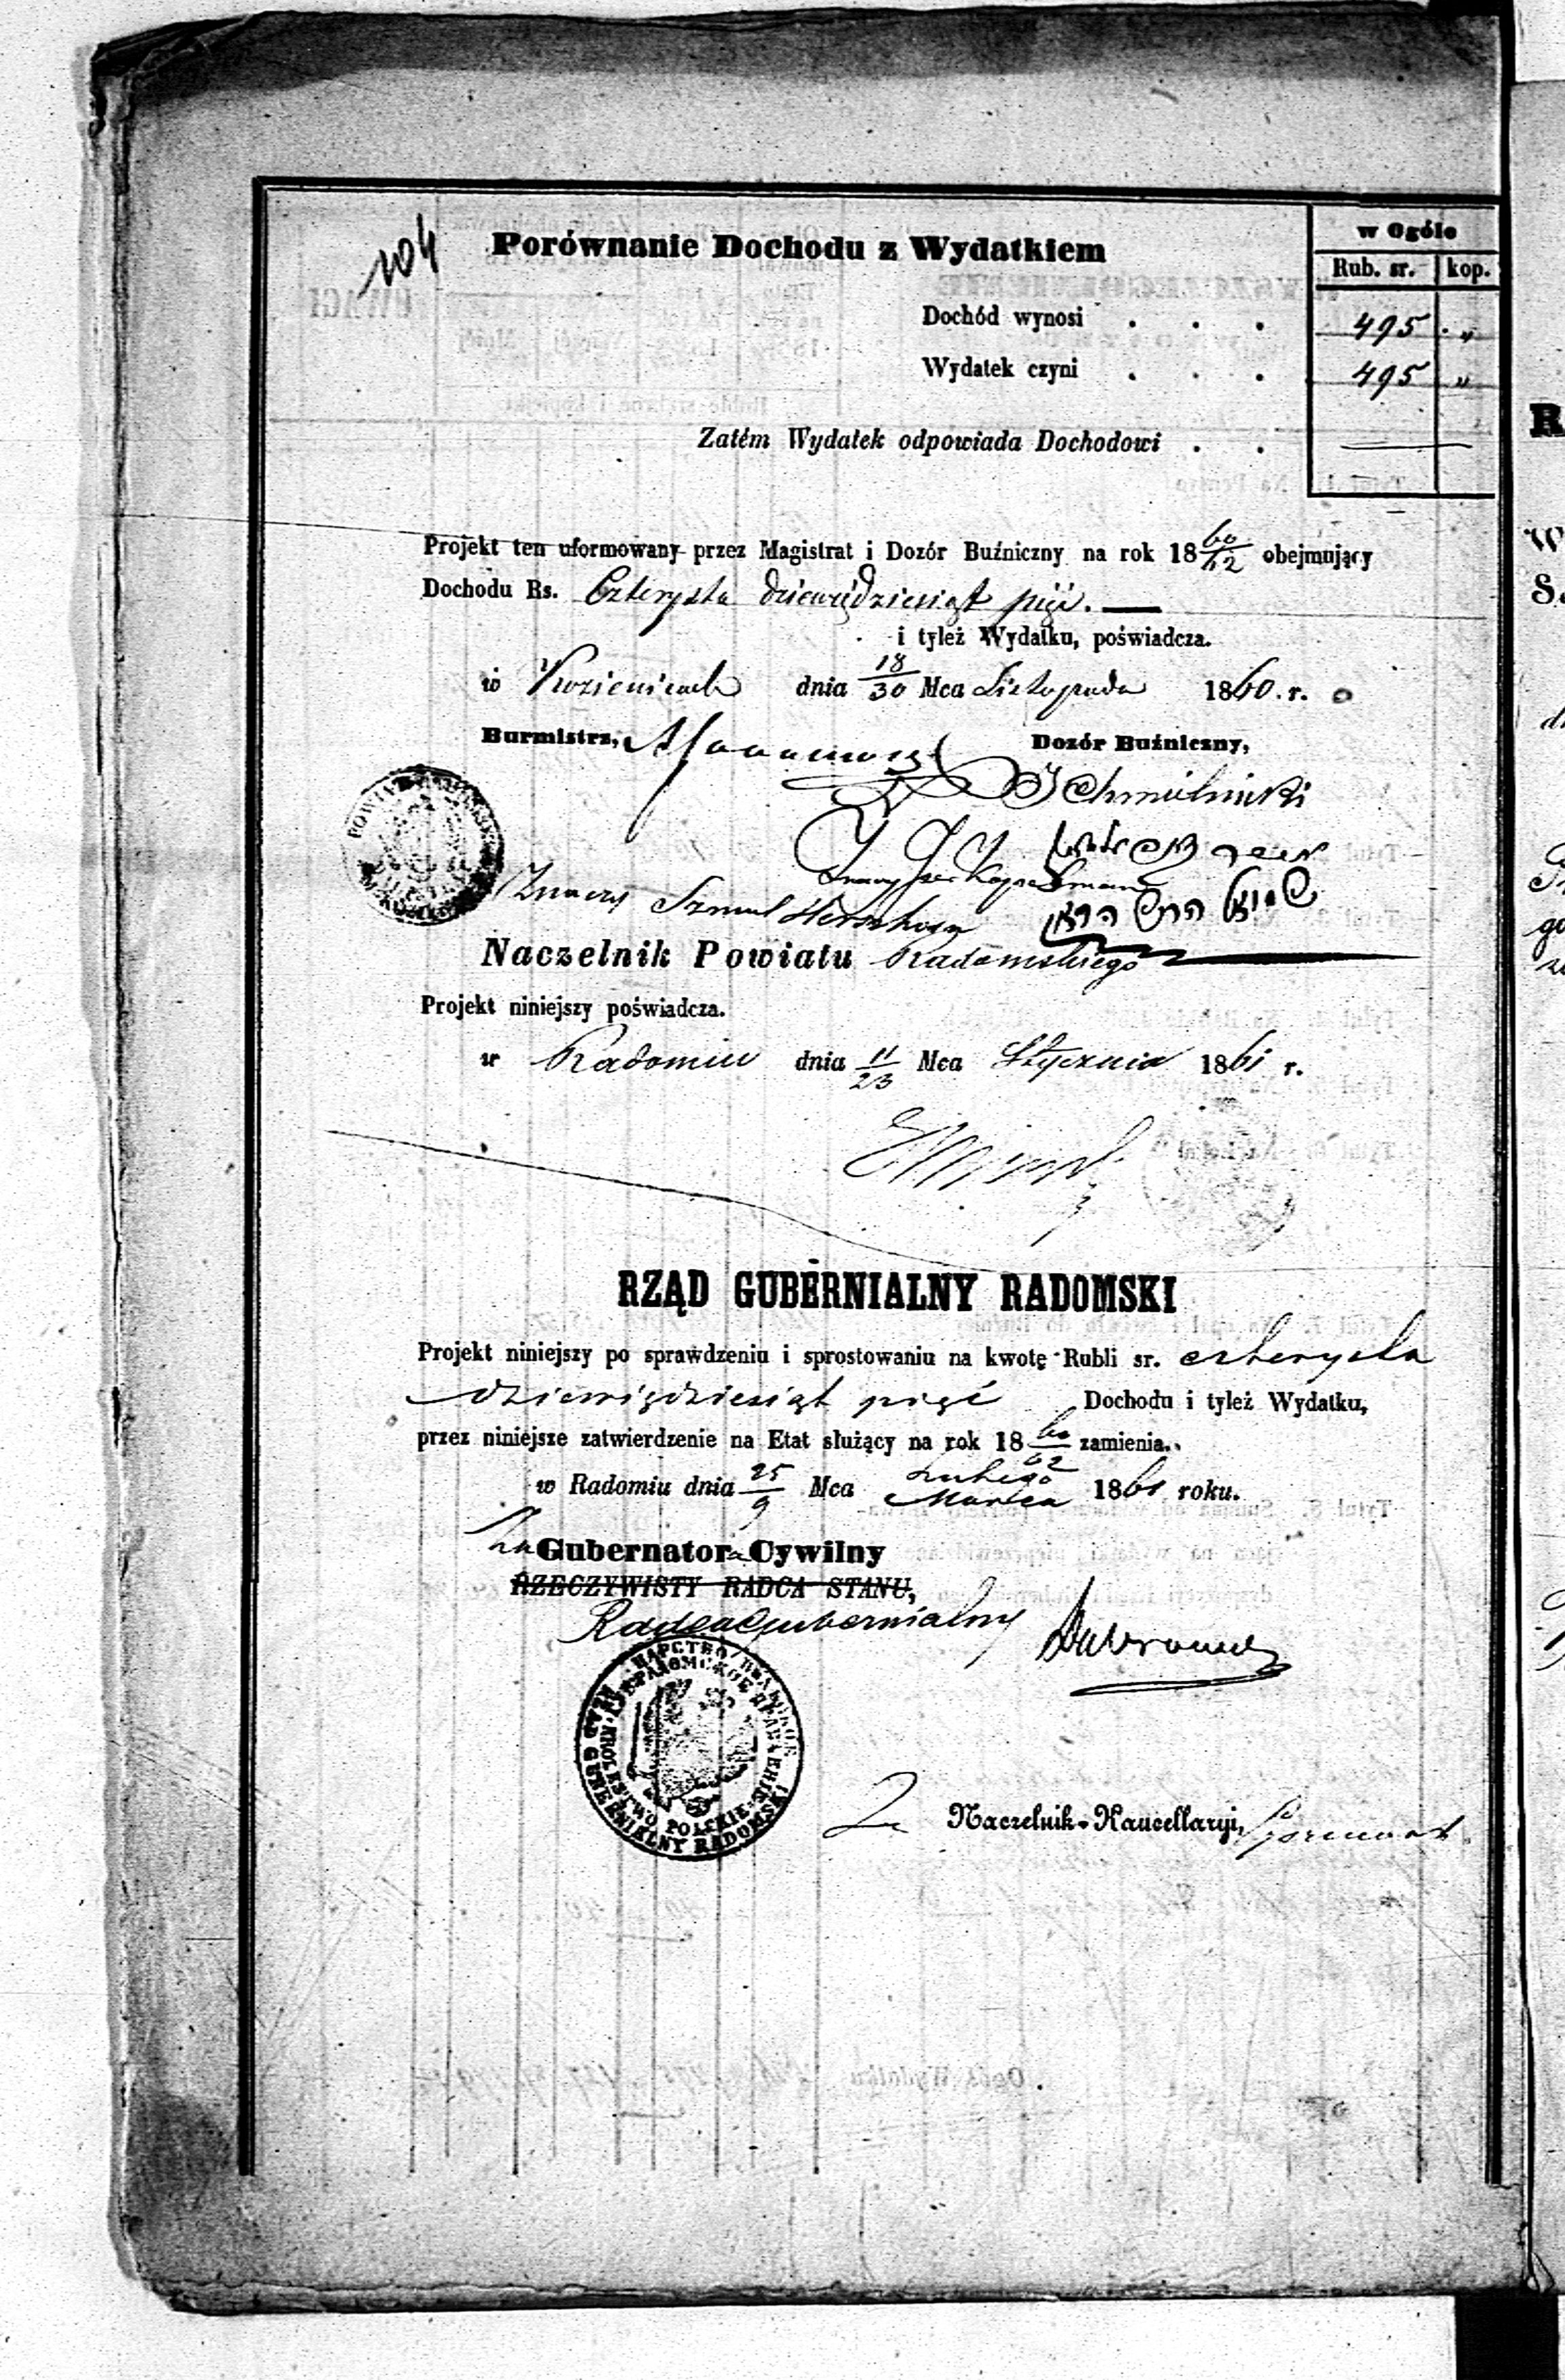 104
Porównanie Dochodu z Wydatkiem
w Ogóle
Rub. sr. kop.
Dochód wynosi . . . 495 . „
Wydatek czyni . . . 495 „
Zatém Wydatek odpowiada Dochodowi . .
Projekt ten uformowany przez Magistrat i Dozór Buźniczny na rok 18 60/62 obejmujący
Dochodu Rs. Czterysta dziewięćdziesiąt pięć. —
i tyleż Wydatku, poświadcza.
w Kozienicach dnia 18/30 Mca Listopada 1860. r.
Burmistrz,
Dozór Buźniczny,
J Chmielnicki
Znaczy Szmul
שמואל הירש
Naczelnik Powiatu Radomskiego
Projekt niniejszy poświadcza.
w Radomiu dnia 11/23 Mca Stycznia 1861 r.
RZĄD GUBERNIALNY RADOMSKI
Projekt niniejszy po sprawdzeniu i sprostowaniu na kwotę Rubli sr. czterysta
dziewięćdziesiąt pięć Dochodu i tyleż Wydatku,
przez niniejsze zatwierdzenie na Etat służący na rok 18 60/62 zamienia.
w Radomiu dnia 25/9 Mca Lutego/Marca 1861 roku.
Za Gubernatora Cywilny
RZECZYWISTY RADCA STANU,
Radca Gubernialny
RZĄD GUBERNIALNY RADOMSKI
KRÓLESTWO POLSKIE
Za Naczelnik Kancellaryi,